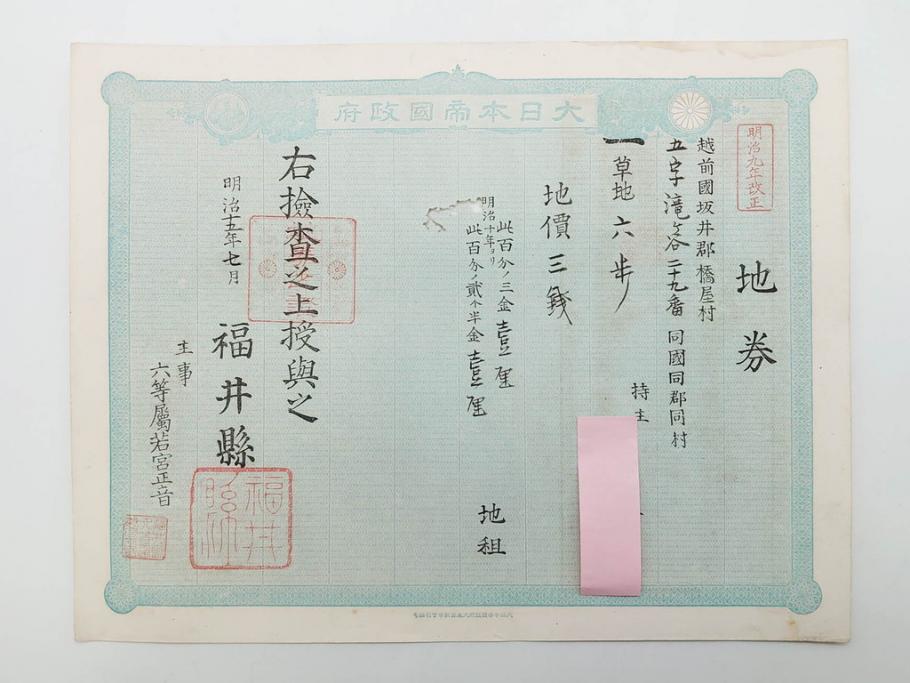 大日本帝國政府
明治九年改正
地券
越前國坂井郡橋屋村
五字滝ヶ谷二十九番 同國同郡同村
一草地六歩
持主
地價三錢
此百分ノ三金壹厘
地租
明治十年ヨリ
此百分ノ貳ケ半金壹厘
右撿查之上授與之
明治十五年七月
福井縣
福井縣
主事
六等屬若宮正音